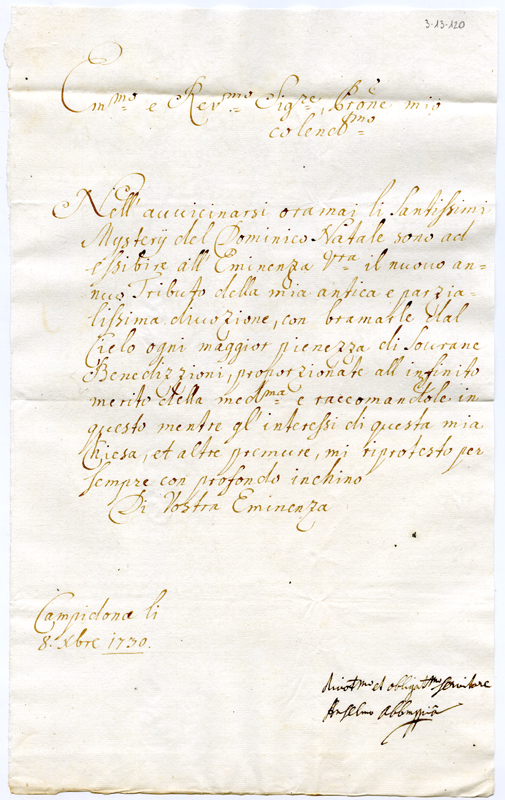 3-13-120
Em.mo e Rev.mo Sig.re, Prone mio
colend.mo
Nell'auuicinarsi oramai li Santissimi
Mysterij del Dominico Natale sono ad
essibire all'Eminenza Vra il nuouo an=
nuo Tributo della mia antica e parzia=
lissima diuozione, con bramarle dal
Cielo ogni maggior pienezza di Sourane
Benedizzioni, proporzionate all'infinito
merito della med.ma e raccomandole in
questo mentre gl'interessi di questa mia
Chiesa, et altre premure, mi riprotesto per
sempre con profondo inchino
Di Vostra Eminenza
Campidona li
8. Xbre 1730.
diuot.mo et obligat.mo seruitore
Anselmo Abbate